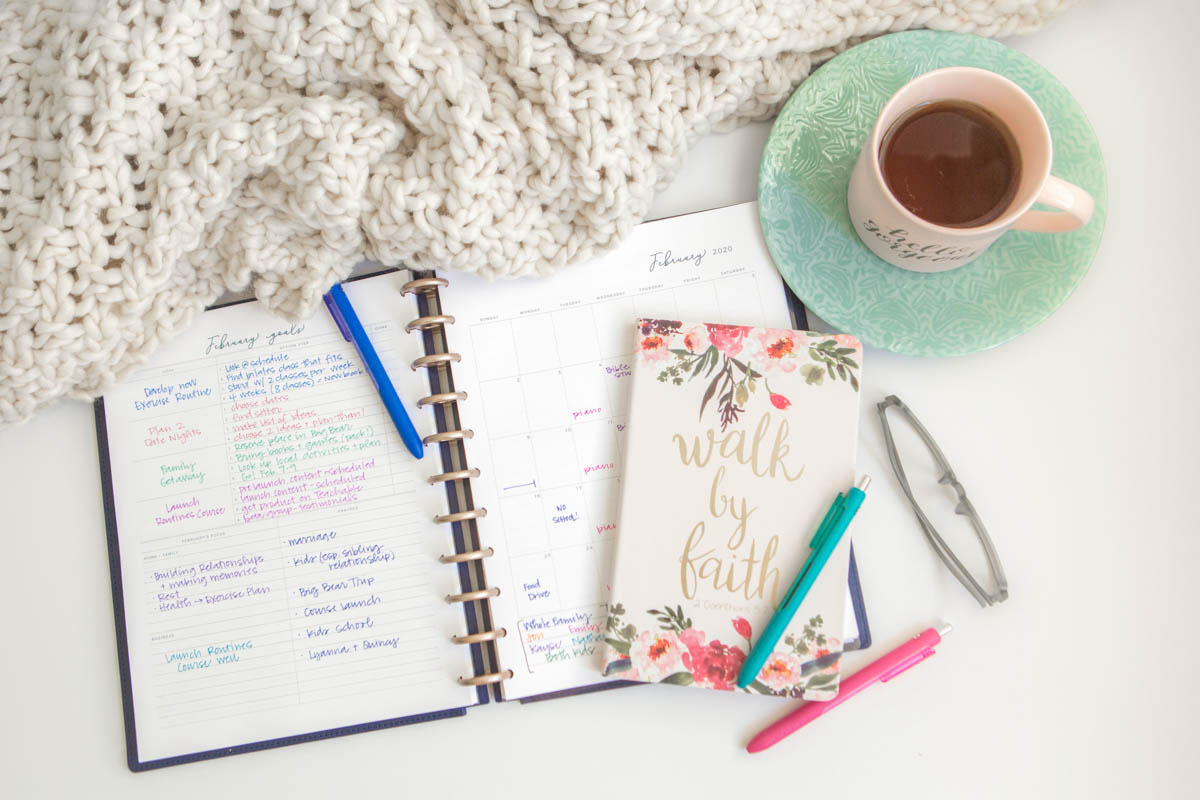 February goals
GOAL
ACTION STEP
DONE
Develop new
Exercise Routine
· Look @ schedule
· Find pilates class that fits
· Start w/ 2 classes per week
· 4 weeks (8 classes) = New book
Plan 2
Date Nights
· choose dates
· find sitter
· make list of ideas
· choose 2 ideas + plan them!
Family
Getaway
· Reserve place in Big Bear
· Bring books + games (pack!)
· Look up local activities + plan
· Go! Feb. 7-9
Launch
Routines Course
· pre launch content - scheduled
· launch content - scheduled
· get product on Teachable
· beta-group-testimonials
FEBRUARY'S FOCUS
PRAYERS
HOME + FAMILY
· Building Relationships
+ making memories
· Rest
· Health → Exercise Plan
BUSINESS
Launch Routines
Course well
· marriage
· kids (esp. sibling
relationship)
· Big Bear Trip
· Course launch
· kids' school
· Lyanna + Quincy
February 2020
SUNDAY MONDAY TUESDAY WEDNESDAY THURSDAY FRIDAY SATURDAY
Bible
piano
piano
NO
School!
piano
Food
Drive
Whole Family
Jon Emily
Kayse
Both kids
walk
by
faith
2 Corinthians 5:7
hello
gorgeous